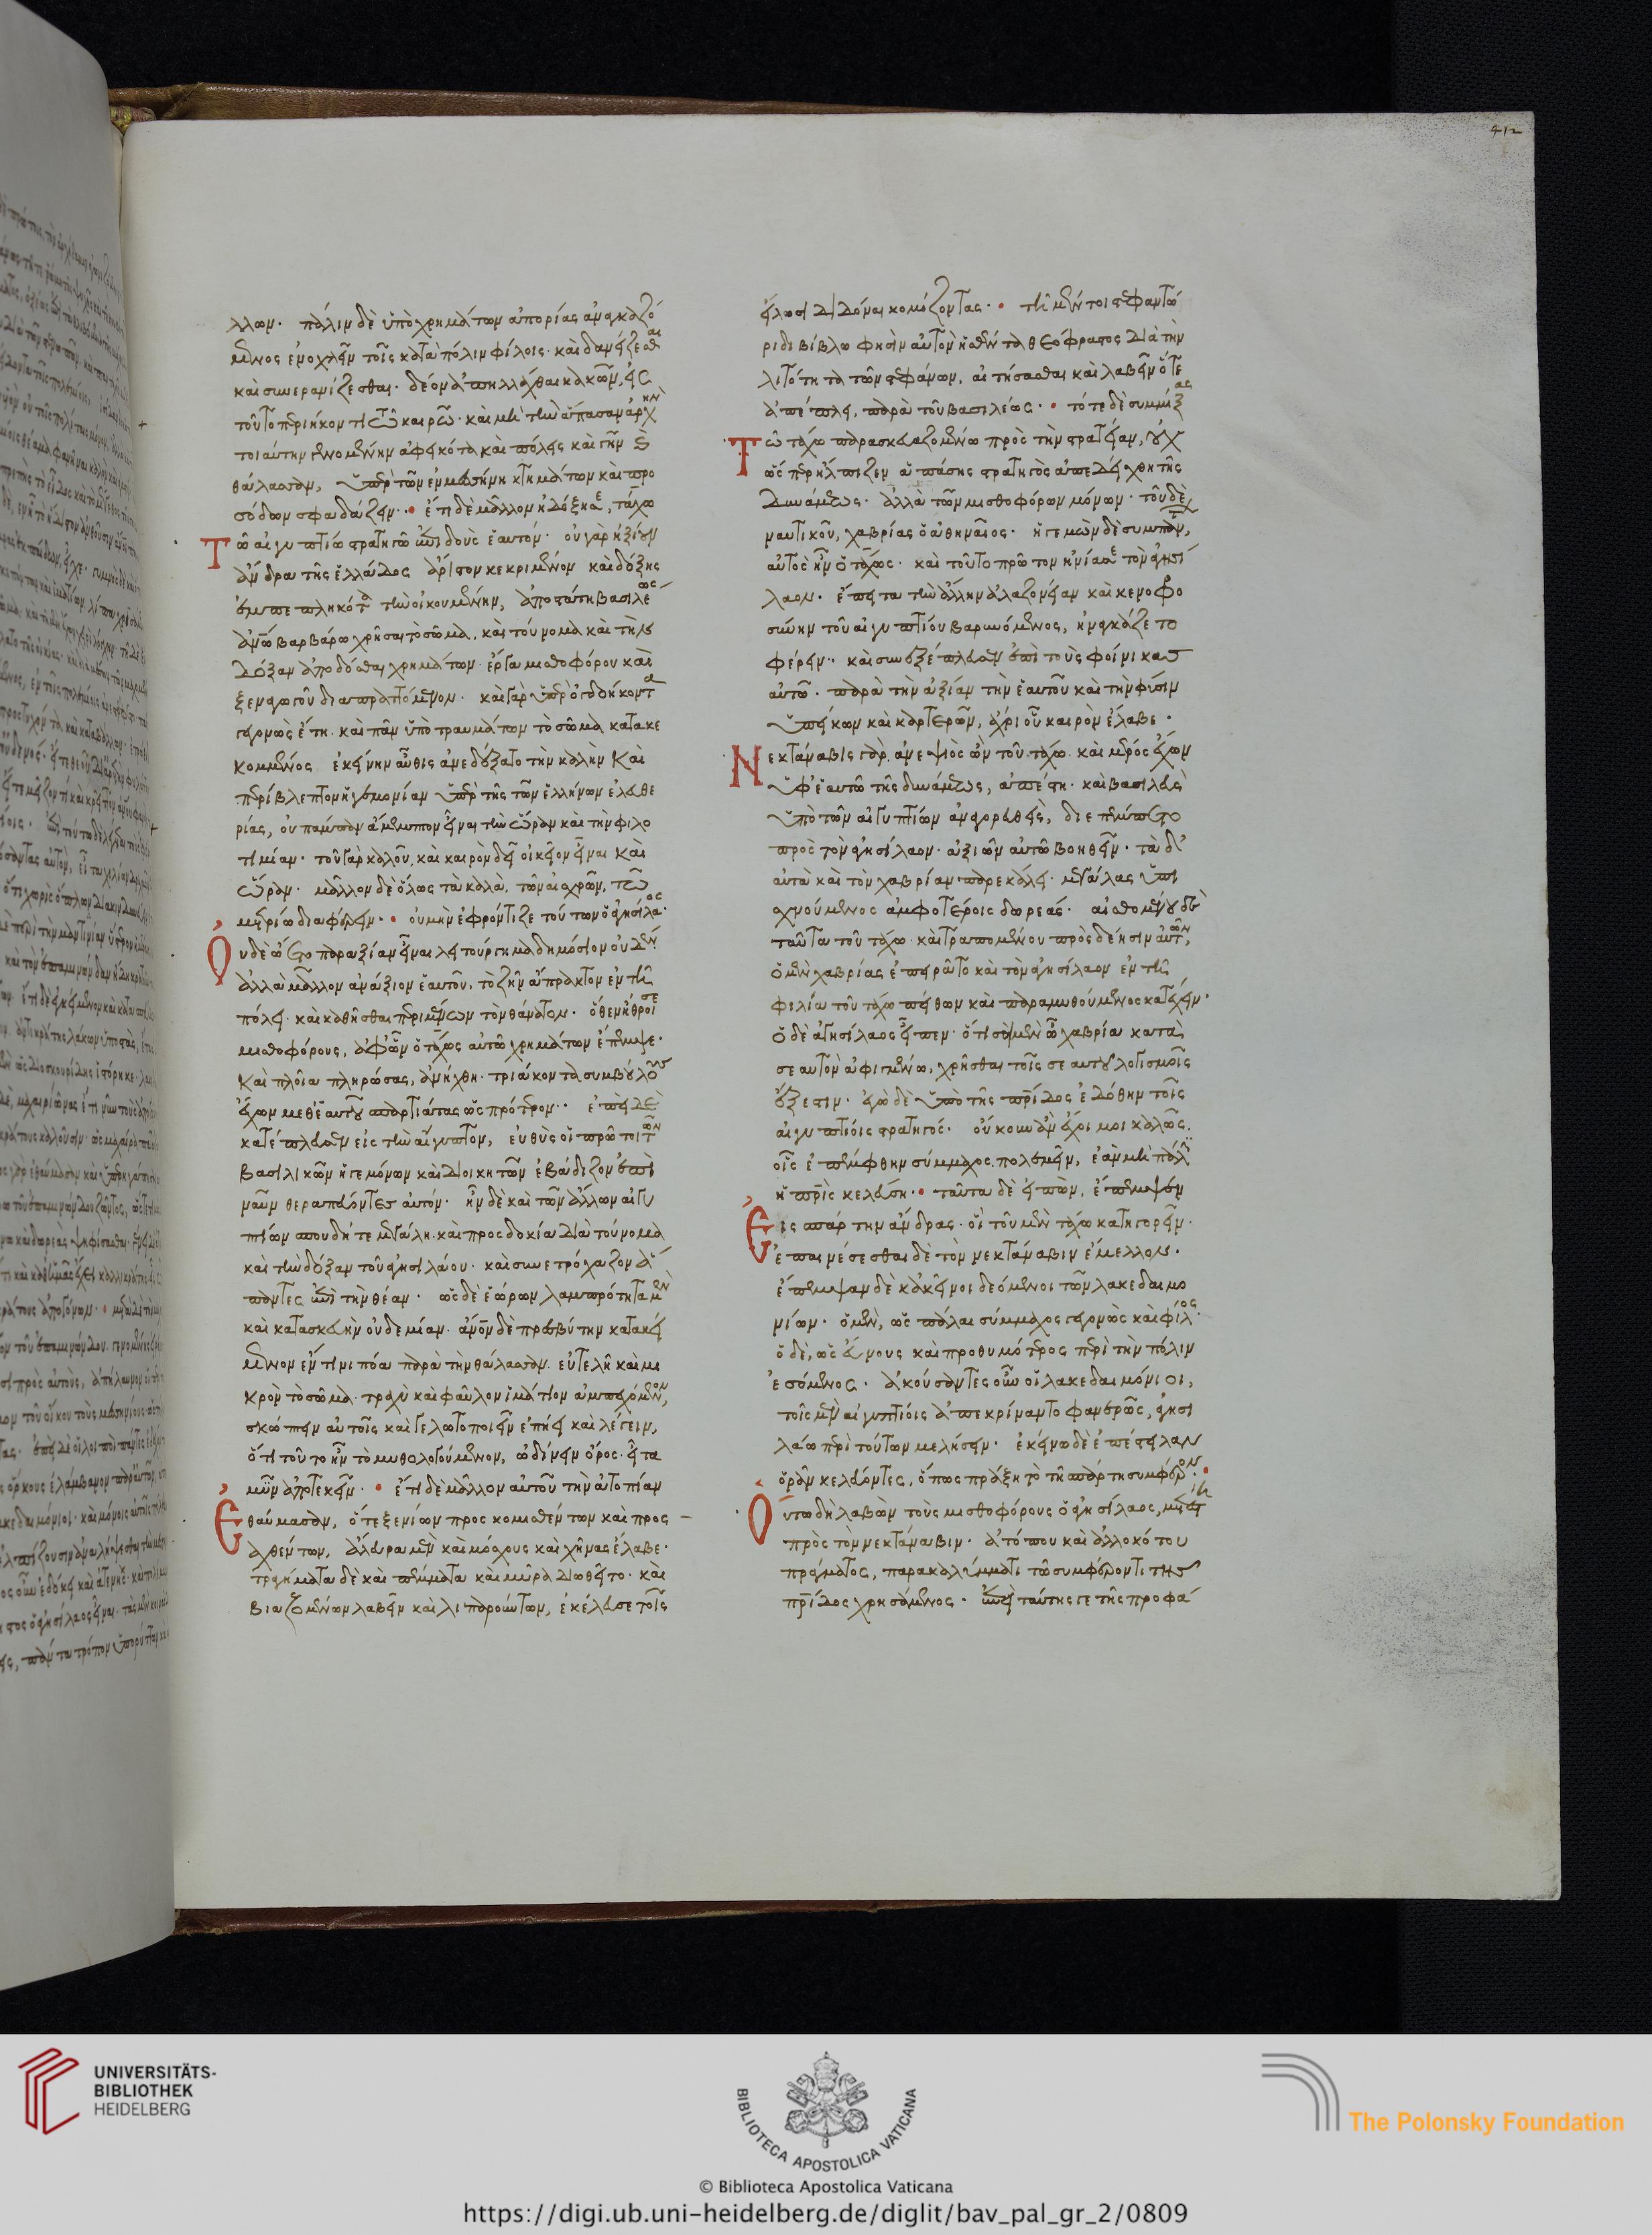 λλων· πάλιν δὲ ὑπὸ χρημάτων ἀπορίας ἀναγκαζό
μενος ἐνοχλεῖν τοῖς κατὰ πόλιν φίλοις· καὶ δανείζεσθαι
καὶ συνερανίζεσθαι· δέον ἀπηλλάχθαι κακῶν, εἰς
τοῦτο περιήκοντι τῶ καιρῶ· καὶ μὴ τὴν ἅπασαν ἀρχὴν
τοιαύτην γενομένην ἀφεικότα καὶ πόλεις καὶ γῆν καὶ
θάλασσαν, ὑπὲρ τῶν ἐν μεσήνη κτημάτων καὶ προ
σόδων σφαδάζειν· ἔτι δὲ μᾶλλον ἠδόξησε, τάχω
τῶ αἰγυπτίω στρατηγῶ ἐπιδοὺς ἑαυτόν· οὐ γὰρ ἠξίουν
ἄνδρα τῆς ἑλλάδος ἄριστον κεκριμένον καὶ δόξης
ἐμπεπληκότα τὴν οἰκουμένην, ἀποστάτη βασιλέως
ἀνω βαρβάρω χρῆσαι τὸ σῶμα, καὶ τούνομα καὶ τὴν
δόξαν ἀποδόσθαι χρημάτων· ἔργα μισθοφόρου καὶ
ξεναγοῦ διαπραττόμενον· καὶ γὰρ ὑπὲρ ὀγδοήκοντα
γεγονὼς ἔτη· καὶ πᾶν ὑπὸ τραυμάτων τὸ σῶμα κατακε
κομμένος ἐκείνην αὖθις ἀνεδέξατο τὴν καλὴν καὶ
περίβλεπτον ἡγεμονίαν ὑπὲρ τῆς τῶν ἑλλήνων ἐλευθε
ρίας, οὐ πάμπαν ἄμεμπτον εἶναι τὴν ὥραν καὶ τὴν φιλο
τιμίαν· τοῦ γὰρ καλοῦ, καὶ καιρὸν δεῖ οἰκεῖον εἶναι καὶ
ὥραν· μᾶλλον δὲ ὅλως τὰ καλὰ, τῶν αἰσχρῶν, τῶ
μετρίω διαφέρειν· οὐ μὴν ἐφρόντιζε τούτων ὁ ἀγησίλαος·
οὐδὲ ὤετο παραξίαν εἶναι λειτούργημα δημόσιον οὐδέν·
ἀλλὰ μᾶλλον ἀνάξιον ἑαυτοῦ, τὸ ζῆν ἄπρακτον ἐν τῆ
πόλει· καὶ καθῆσθαι περιμένων τὸν θάνατον· ὅθεν ἤθροισε
μισθοφόρους, ἀφ’ ὧν ὁ τάχως αὐτῶ χρημάτων ἔπεμψε·
καὶ πλοῖα πληρώσας, ἀνήχθη· τριάκοντα συμβούλους
ἔχων μεθ’ ἑαυτοῦ σπαρτιάτας ὡς πρότερον· ἐπεὶ δὲ
κατέπλευσεν εἰς τὴν αἴγυπτον, εὐθὺς οἱ πρῶτοι τῶν
βασιλικῶν ἡγεμόνων καὶ διοικητῶν ἐβάδιζον ἐπὶ
ναῦν θεραπεύοντες αὐτόν· ἦν δὲ καὶ τῶν ἄλλων αἰγυ
πτίων σπουδή τε μεγάλη· καὶ προσδοκία διὰ τούνομα
καὶ τὴν δόξαν τοῦ ἀγησιλάου· καὶ συνετρόχαζον ἅ
παντες ἐπὶ τὴν θέαν· ὡς δὲ ἑώρων λαμπρότητα μὲν
καὶ κατασκευὴν οὐδεμίαν· ἀνον δὲ πρεσβύτην κατακεί
μενον ἔν τινι πόα παρὰ τὴν θάλασσαν· εὐτελῆ καὶ μι
κρὸν τὸ σῶμα· τραχὺ καὶ φαῦλον ἱμάτιον ἀμπεχόμενον,
σκώπτειν αὐτοῖς καὶ γελωτοποιεῖν ἐπήει καὶ λέγειν,
ὅτι τοῦτο ἦν τὸ μυθολογούμενον, ὠδίνειν ὄρος· εἶτα
μῦν ἀποτεκεῖν· ἔτι δὲ μᾶλλον αὐτοῦ τὴν ἀτοπίαν
ἐθαύμασαν, ὅτε ξενίων προσκομισθέντων καὶ προσ
αχθέντων, ἄλευρα μὲν καὶ μόσχους καὶ χῆνας ἔλαβε·
τραγήματα δὲ καὶ πέμματα καὶ μύρα διωθεῖτο· καὶ
βιαζομένων λαβεῖν καὶ λιπαρούντων, ἐκέλευσε τοῖς
εἵλωσι διδόναι κομίζοντας· τῆ μέντοι στεφανωτ
ρίδι βίβλω φησὶν αὐτὸν ἡσθέντα θεόφραστος διὰ τὴν
λιτότητα τῶν στεφάνων, αἰτήσασθαι καὶ λαβεῖν ὅτε
ἀπέπλει, παρὰ τοῦ βασιλέως· τότε δὲ συμμίξας
τῶ τάχω παρασκευαζομένω πρὸς τὴν στρατείαν, οὐχ
ὡς περ ἤλπιζεν ἁπάσης στρατηγὸς ἀπεδείχθη τῆς
δυνάμεως· ἀλλὰ τῶν μισθοφόρων μόνων· τοῦ δὲ
ναυτικοῦ, χαβρίας ὁ ἀθηναῖος· ἡγεμὼν δὲ συμπάντων,
αὐτὸς ἦν ὁ τάχως· καὶ τοῦτο πρῶτον ἠνίασε τὸν ἀγησί
λαον· ἔπειτα τὴν ἄλλην ἀλαζονείαν καὶ κενοφρο
σύνην τοῦ αἰγυπτίου βαρυνόμενος, ἠναγκάζετο
φέρειν· καὶ συνεξέπλευσεν ἐπὶ τοὺς φοίνικας
αὐτῶ· παρὰ τὴν ἀξίαν τὴν ἑαυτοῦ καὶ τὴν φύσιν
ὑπείκων καὶ καρτερῶν, ἄχρι οὗ καιρὸν ἔλαβε·
νεκτάναβις γὰρ ἀνεψιὸς ὢν τοῦ τάχω· καὶ μέρος ἔχων
ὑφ’ ἑαυτῶ τῆς δυνάμεως, ἀπέστη· καὶ βασιλεὺς
ὑπὸ τῶν αἰγυπτίων ἀναγορευθεὶς, διεπέμπετο
πρὸς τὸν ἀγησίλαον· ἀξιῶν αὐτῶ βοηθεῖν· τὰ δ’
αὐτὰ καὶ τὸν χαβρίαν παρεκάλει· μεγάλας ὑπι
σχνούμενος ἀμφοτέροις δωρεάς· αἰσθομένου δὲ
ταῦτα τοῦ τάχω· καὶ τραπομένου πρὸς δέησιν αὐτῶν,
ὁ μὲν χαβρίας ἐπειρᾶτο καὶ τὸν ἀγησίλαον ἐν τῆ
φιλία τοῦ τάχω πείθων καὶ παραμυθούμενος κατέχειν·
ὁ δὲ ἀγησίλαος εἶπεν· ὅτι σοὶ μὲν ὦ χαβρία κατὰ
σεαυτὸν ἀφιγμένω, χρῆσθαι τοῖς σεαυτοῦ λογισμοῖς
ἔξεστιν· ἐγὼ δὲ ὑπὸ τῆς πρίδος ἐδόθην τοῖς
αἰγυπτίοις στρατηγός· οὔκουν ἂν ἔχοι μοι καλῶς
οἷς ἐπέμφθην σύμμαχος πολεμεῖν, ἐὰν μὴ πάλιν
ἡ πρὶς κελεύση· ταῦτα δὲ εἰπὼν, ἔπεμψεν
εἰς σπάρτην ἄνδρας· οἳ τοῦ μὲν τάχω κατηγορεῖν·
ἐπαινέσεσθαι δὲ τὸν νεκτάναβιν ἔμελλον·
ἔπεμψαν δὲ κἀκεῖνοι δεόμενοι τῶν λακεδαιμο
νίων· ὁ μὲν, ὡς πάλαι σύμμαχος γεγονὼς καὶ φίλος·
ὁ δὲ, ὡς εὔνους καὶ προθυμότερος περὶ τὴν πόλιν
ἐσόμενος· ἀκούσαντες οὖν οἱ λακεδαιμόνιοι,
τοῖς μὲν αἰγυπτίοις ἀπεκρίναντο φανερῶς, ἀγησι
λάω περὶ τούτων μελήσειν· ἐκείνω δὲ ἐπέστειλαν
ὁρᾶν κελεύοντες, ὅπως πράξη τὸ τῆ σπάρτη συμφέρον·
οὕτω δὴ λαβὼν τοὺς μισθοφόρους ὁ ἀγησίλαος, μετέστη
πρὸς τὸν νεκτάναβιν· ἀτόπου καὶ ἀλλοκότου
πράγματος, παρακαλύμματι τῶ συμφέροντι τῆς
πρίδος χρησάμενος· ἐπεὶ ταύτης γε τῆς προφά
412
UNIVERSITÄTS-
BIBLIOTHEK
HEIDELBERG
BIBLIOTECA APOSTOLICA VATICANA
The Polonsky Foundation
© Biblioteca Apostolica Vaticana
https://digi.ub.uni-heidelberg.de/diglit/bav_pal_gr_2/0809